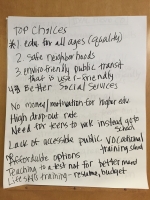 TOP CHOICES
#1 edu for all ages (equality)
2. safe neighborhoods
3. enviro-friendly public transit
that is user-friendly
#3 Better Social Services
No money/motivation for higher edu
High drop-out rate
Need for teens to work instead go to
school
Lack of accessible public vocational
training school
Affordable options
Teaching to a test not for better
Lifeskills training - resume, budget